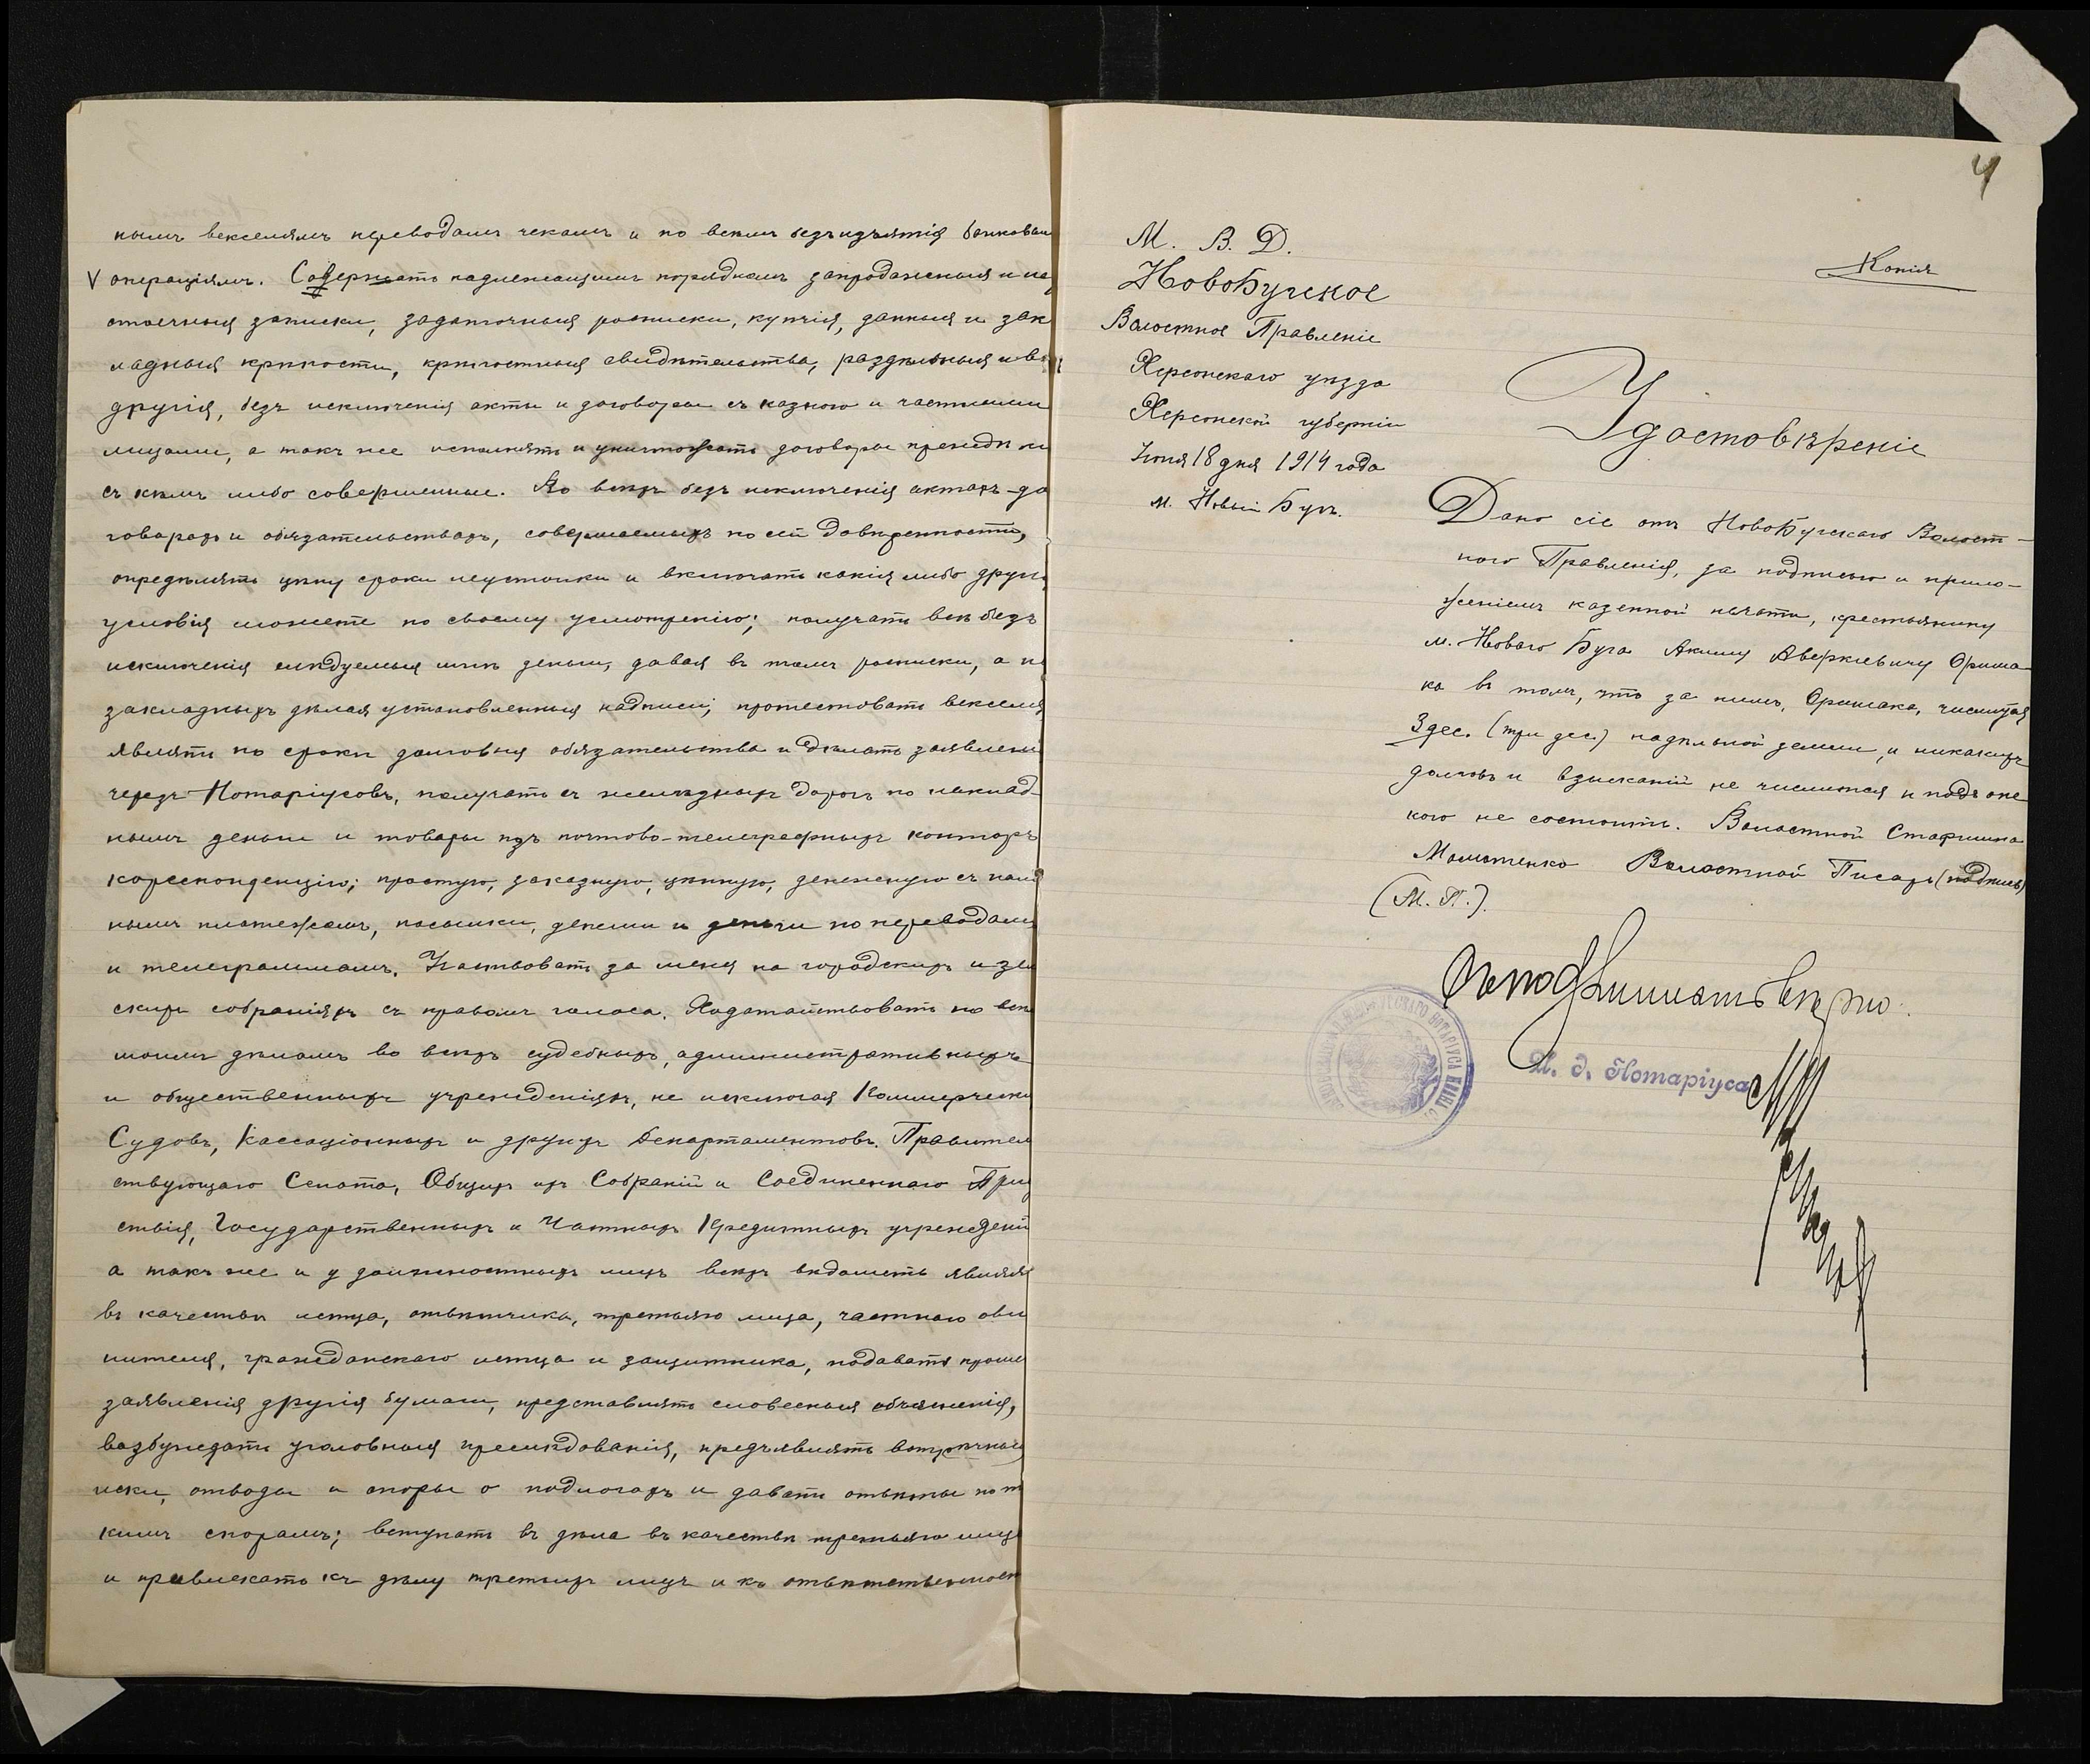 нымъ векселямъ переводамъ чекамъ и по всѣмъ безъ изъятія банковым
V операціямъ. Совершать надлежащимъ порядкомъ запродажныя и на
стоечныя записки, задаточныя росписки, купчія, данныя и зак
ладныя крѣпости, крѣпостныя свидѣтельства, раздѣльныя и в
другія, безъ исключенія акты и договоры съ казною и частными
лицами, а такъ же исполнять и уничтожать договоры прежде
съ кѣмъ либо совершенные. Во всѣхъ безъ исключенія актахъ до
говорахъ и обязательствахъ, совершаемыхъ по сей довѣренности,
опредѣлять цѣну сроки неустойки и включать какія либо други
условія можете по своему усмотрѣнію; получать всѣ безъ
исключенія слѣдуемыя мнѣ деньги, давая въ томъ росписки, а н
закладныхъ дѣлая установленныя надписи; протестовать векселя
являть по сроки долговыя обязательства и дѣлать заявлени
черезъ Нотаріусовъ, получать съ желѣзныхъ дорогъ по наклад-
нымъ деньги и товары изъ почтово-телеграфныхъ конторъ
кореспонденцію; простую, заказную, цѣнную, денежную съ нало
нымъ платежомъ, посылки, депеши и деньги по переводамъ
и телеграммамъ. Участвовать за меня на городскихъ и зем
скихъ собраніяхъ съ правомъ голоса. Ходатайствовать по всѣ
моимъ дѣламъ во всѣхъ судебныхъ, административныхъ
и общественныхъ учрежденіяхъ, не исключая Коммерчески
Судовъ, Кассаціонныхъ и другихъ Департаментовъ. Правител
ствующаго Сената, Общихъ ихъ Собраній и Соединеннаго При
ствія, Государственныхъ и Частныхъ Кредитныхъ учреждені
а такъ же и у должностныхъ лицъ всѣхъ вѣдомствъ являя
въ качествѣ истца, отвѣтчика, третьяго лица, частнаго обви
нителя, гражданскаго истца и защитника, подавать проше
заявленія другія бумаги, представлять словесныя объясненія,
возбуждать уголовныя преслѣдованія, предъявлять встрѣчные
иски, отводы и споры о подлогахъ и давать отвѣты по т
кимъ спорамъ; вступать въ дѣла въ качествѣ третьяго лица
и привлекать къ дѣлу третьихъ лицъ и къ отвѣтственност
4
Копія
М. В. Д.
НовоБугское
Волостное Правленіе
Херсонскаго уѣзда
Херсонской губерніи
Іюня 18 дня 1914 года
м. Новый Бугъ.
Удостовѣреніе
Дано сіе отъ НовоБугскаго Волост-
ного Правленія, за подписью и прило-
женіемъ казенной печати, крестьянину
м. Новаго Буга Акиму Аверкіевичу Ориша-
ка въ томъ, что за нимъ, Оришака, числится
3 дес. (три дес.) надѣльной земли, и никакихъ
долговъ и взысканій не числится и подъ опе
кою не состоитъ. Волостной Старшина
Волостной Писарь (подпись)
(М. П.).
Съ подлиннымъ вѣрно.
И. д. Нотаріуса